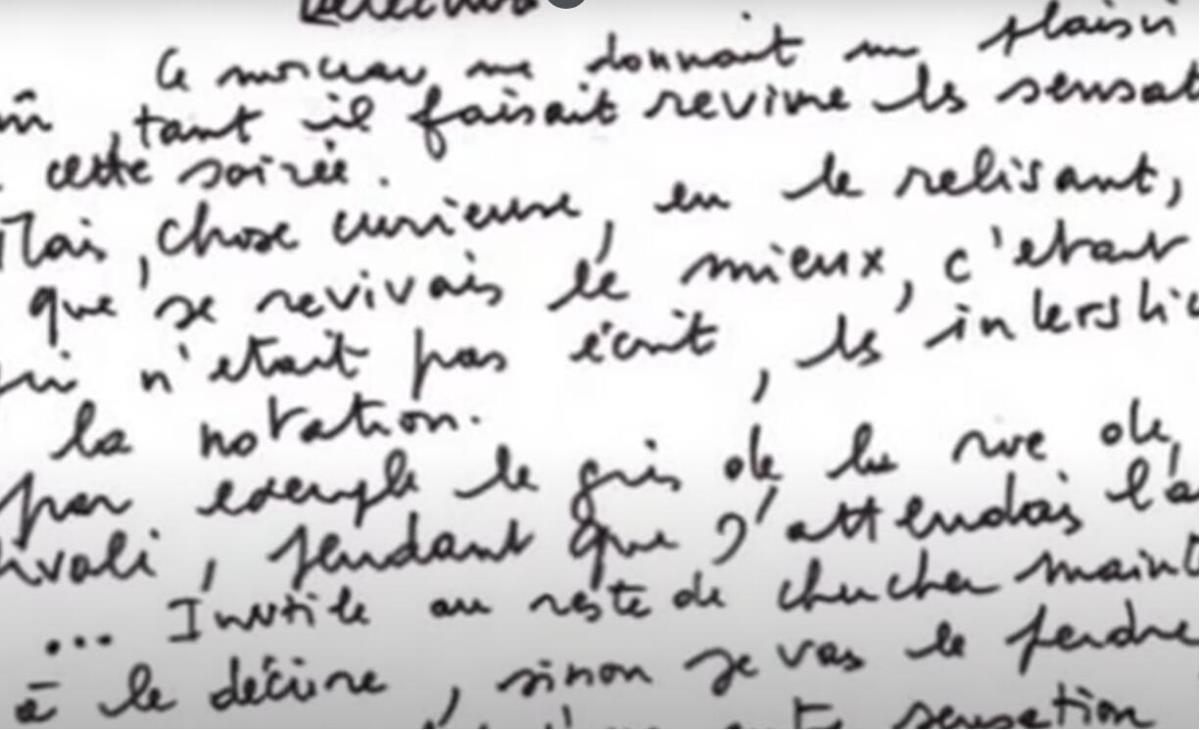 Ce morceau me donnait un plaisi
, tant il faisait revivre les sensat
cette soirée.
Mais, chose curieuse, en le relisant,
que je revivais le mieux, c'etait
n'etait pas écrit, les interstic
la notation.
par exemple le gris de la rue de
ivoli, pendant que j'attendais l'a
... Inutile au reste de chercher maint
à le décrire, sinon je vas le perdre
sensation